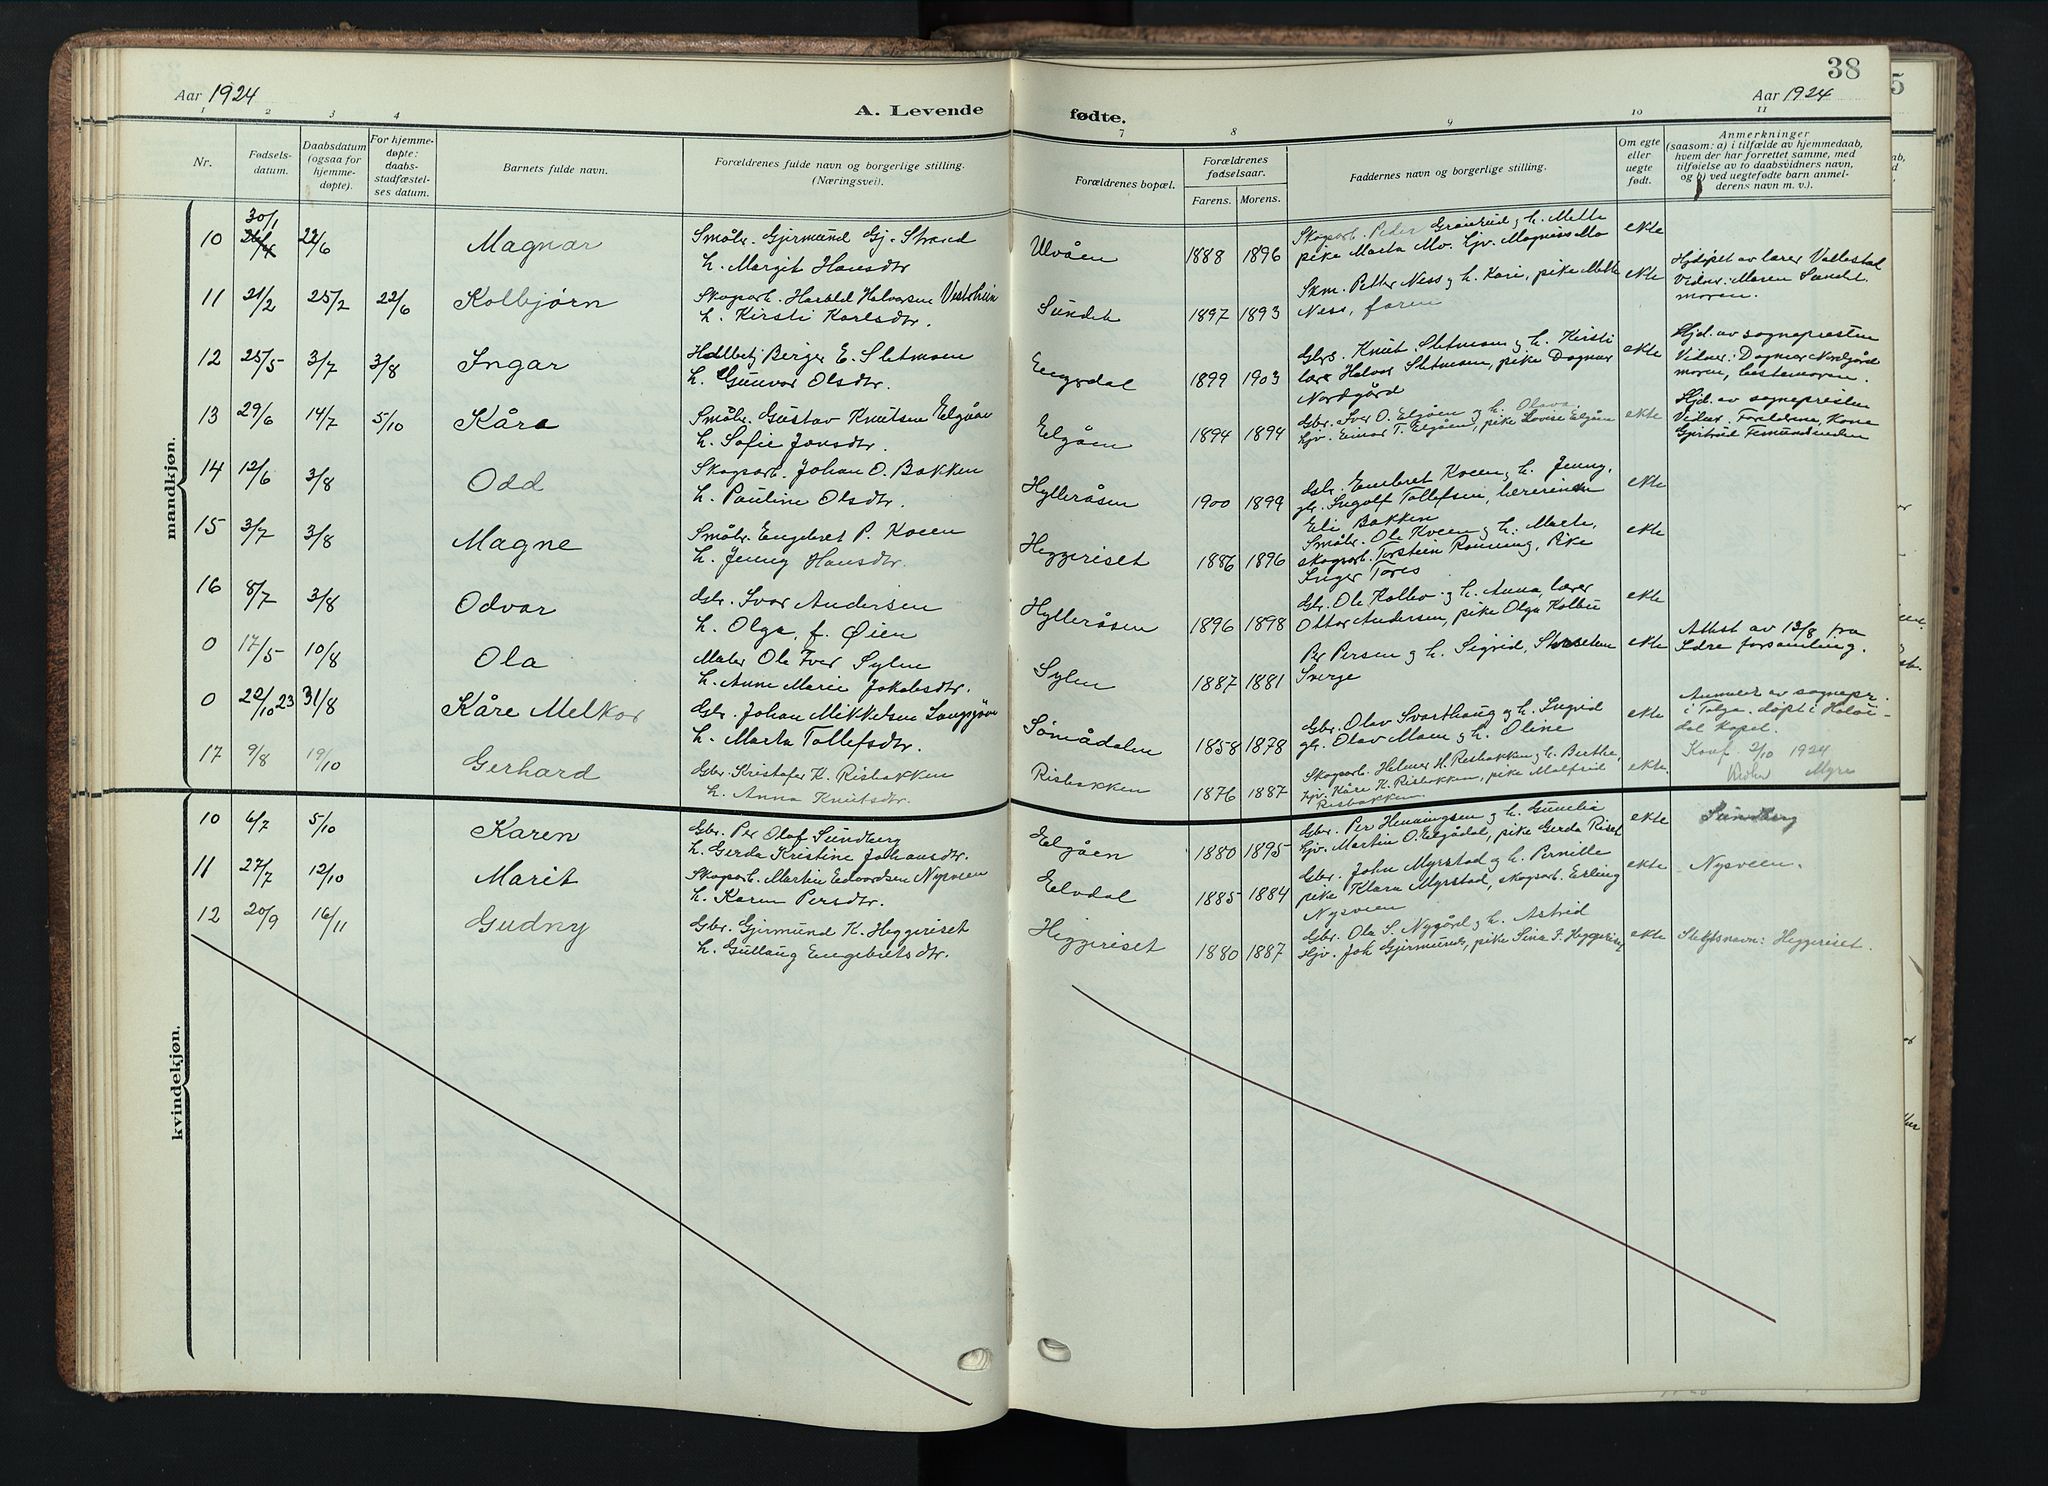 38
Aar 1924
A. Levende fødte.
Aar 1924
1 2 3 4 7 8 9 10 11
Nr.
Fødsels-
datum.
Daabsdatum
(ogsaa for
hjemme-
døpte).
For hjemme-
døpte:
daabs-
stadfæstel-
ses datum.
Barnets fulde navn.
Forældrenes fulde navn og borgerlige stilling.
(Næringsvei).
Forældrenes bopæl.
Forældrenes
fødselsaar.
Farens. Morens.
Faddernes navn og borgerlige stilling.
Om egte
eller
uegte
født.
Anmerkninger
(saasom: a) i tilfælde av hjemmedaab,
hvem der har forrettet samme, med
tilføielse av to daabsvidners navn,
og b) ved uegtefødte barn anmel-
derens navn m. v.).
mandkjøn.
10 30/1 22/6 Magnar
Småbr. Gjermund Gj. Strand
h. Margit Hansdtr
Ulvåen 1888 1896
Skogsarb. Peder Graierud og h. Mette
pike Marta Mo. Gv. Magnus Mo
ekte
11 21/2 25/2 22/6 Kolbjørn
Skogsarb. Harald Halvorsen Vestshein
h. Kirsti Karlsdtr.
Sundet 1897 1893
Skm. Petter Ness og h. Kari, pike Mette
Ness, faren
ekte
Hjdøpt av lærer Vallestad
Vidner: Maren Sundet
moren.
12 25/5 3/7 3/8 Ingar
Birger E. Sletmoen
h. Gunvor Olsdtr.
Engerdal 1899 1903
Gbrs. Knut Sletmoen og h. Kirsti
lærer Halvor Sletmoen, pike Dagnar
Nordgård
ekte
Hjd. av sognepresten
Vidner: Dagmar Nordgård
moren, bestemoren.
13 29/6 14/7 5/10 Kåre
Småbr. Gustav Knutsen Elgåen
h. Sofie Jonsdtr.
Elgåen 1894 1894
Gbr. Iver O. Elgåen og h. Olava
Gjv. Einar T. Elgåen, pike Lovise Elgåen
ekte
Hjd. av sognepresten
Vidner. Foreldrene, Kone
Femundsenden
14 12/6 3/8 Odd
Skogsarb. Johan O. Bakken
h. Pauline Olsdtr.
Hylleråsen 1900 1899
Gbr. Embret Kveen og h. Jenny,
gbr. Ingolf Tollefsen, lærerinden
Eli Bakken
ekte
15 3/7 3/8 Magne
Småbr. Engebret P. Kveen
h. Jenny Hansdtr.
Heggeriset 1886 1896
Småbr. Ole Kveen og h. Marte,
skogsarb. Torstein Rønning, Pike
Inger Tores
ekte
16 8/7 3/8 Odvar
Gbr. Ivar Andersen
h. Olga, f. Øien
Hylleråsen 1896 1898
Gbr. Ole Kolbu og h. Anna, lærer
Ottar Andersen, pike Olga Kolbu
ekte
0 17/5 10/8 Ola
Maler Ole Iver Sylen
h. Anne Marie Jakobsdtr.
Sylen 1887 1881
Per Persen og h. Sigrid, Storsetern
Sverge
ekte
Attest av 13/8 fra
Idre forsamling.
0 20/10 23 31/8 Kåre Melkor
Gbr. Johan Mikkelsen Langsjøen
h. Marta Tollefsdtr.
Sømådalen 1858 1878
Gbr. Olav Svarthaug og h. Ingrid
gbr. Olav Moen og h. Oline
ekte
Anmeldt av sognepr.
i Tolga. døpt i Holøi-
dal Kapel.
17 9/8 19/10 Gerhard
Gbr. Kristofer K. Risbakken
h. Anna Knutsdtr.
Risbakken 1876 1887
Skogsarb. Helmer H. Risbakken og h. Berthe,
Gjv. Kåre K. Risbakken, pike Malfrid
Risbakken.
ekte.
Konf. 2/10 1924
kvindekjøn.
10 6/7 5/10 Karen
Gbr. Per Olof Sundberg
h. Gerda Kristine Johansdtr.
Elgåen 1880 1895
Gbr. Per Henningsen og h. Gunelie
Gjv. Martin O. Elgådal, pike Gerda Riset
ekte
Sundberg
11 27/7 12/10 Marit
Skogsarb. Martin Edvardsen Nysveen
h. Karen Persdtr.
Elvdal 1885 1884
Gbr. John Myrstad og h. Pernille
pike Klara Myrstad, skogsarb. Erling
Nysveen
ekte
Nysveen.
12 20/9 16/11 Gudny
Gbr. Gjermund K. Heggeriset
h. Gullaug Engebretsdtr.
Heggeriset 1880 1887
Gbr. Ola S. Nygård og h. Astrid
Gjv. Joh Gjermunds, pike Sina F. Heggeriset
ekte
Slegtsnavn: Heggeriset.